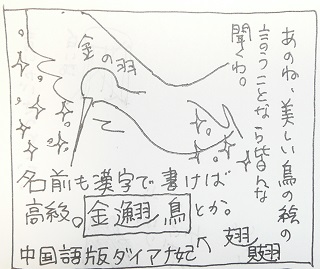 あのね、美しい鳥の絵の
言うことなら皆んな
聞くわ。
金の羽
名前も漢字で書けば
高級。金翮鳥とか。
中国語版ダイアナ妃へ
翅